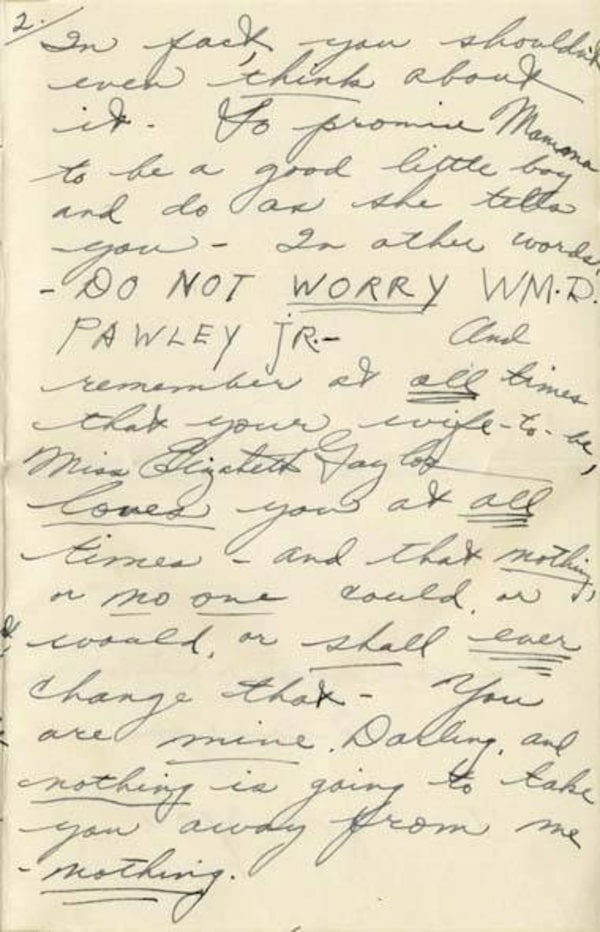 2.
In fact, you shouldn't
even think about
it. So promise Mamma
to be a good little boy
and do as she tells
you - In other words,
- DO NOT WORRY WM.D.
PAWLEY JR.- And
remember at all times
that your wife-to-be,
Miss Elizabeth Taylor
loves you at all
times - and that nothing,
or no one could, or
would, or shall ever
change that - You
are mine, Darling, and
nothing is going to take
you away from me
- nothing.